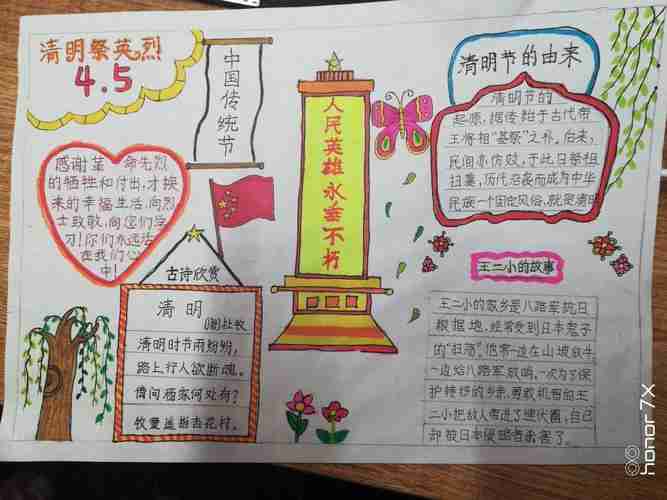 清明祭英烈
4.5
中国传统节
感谢革命先烈
的牺牲和付出,才换
来的幸福生活,向烈
士致敬,向您们学
习!你们永远活
在我们心
中!
古诗欣赏
清明
(唐)杜牧
清明时节雨纷纷,
路上行人欲断魂。
借问酒家何处有?
牧童遥指杏花村。
人民英雄永垂不朽
清明节的由来
清明节的
起源,据传始于古代帝
王将相"墓祭"之礼。后来,
民间亦仿效,于此日祭祖
扫墓,历代沿袭而成为中华
民族一个固定风俗,就是清明
王二小的故事
王二小的家乡是八路军抗日
根据地,经常受到日本鬼子
的"扫荡"。他常一边在山坡放牛
一边给八路军放哨,一次为了保
护转移的乡亲,勇敢机智的王
二小把敌人带进了埋伏圈,自己
却被日本侵略者杀害了。
honor 7X